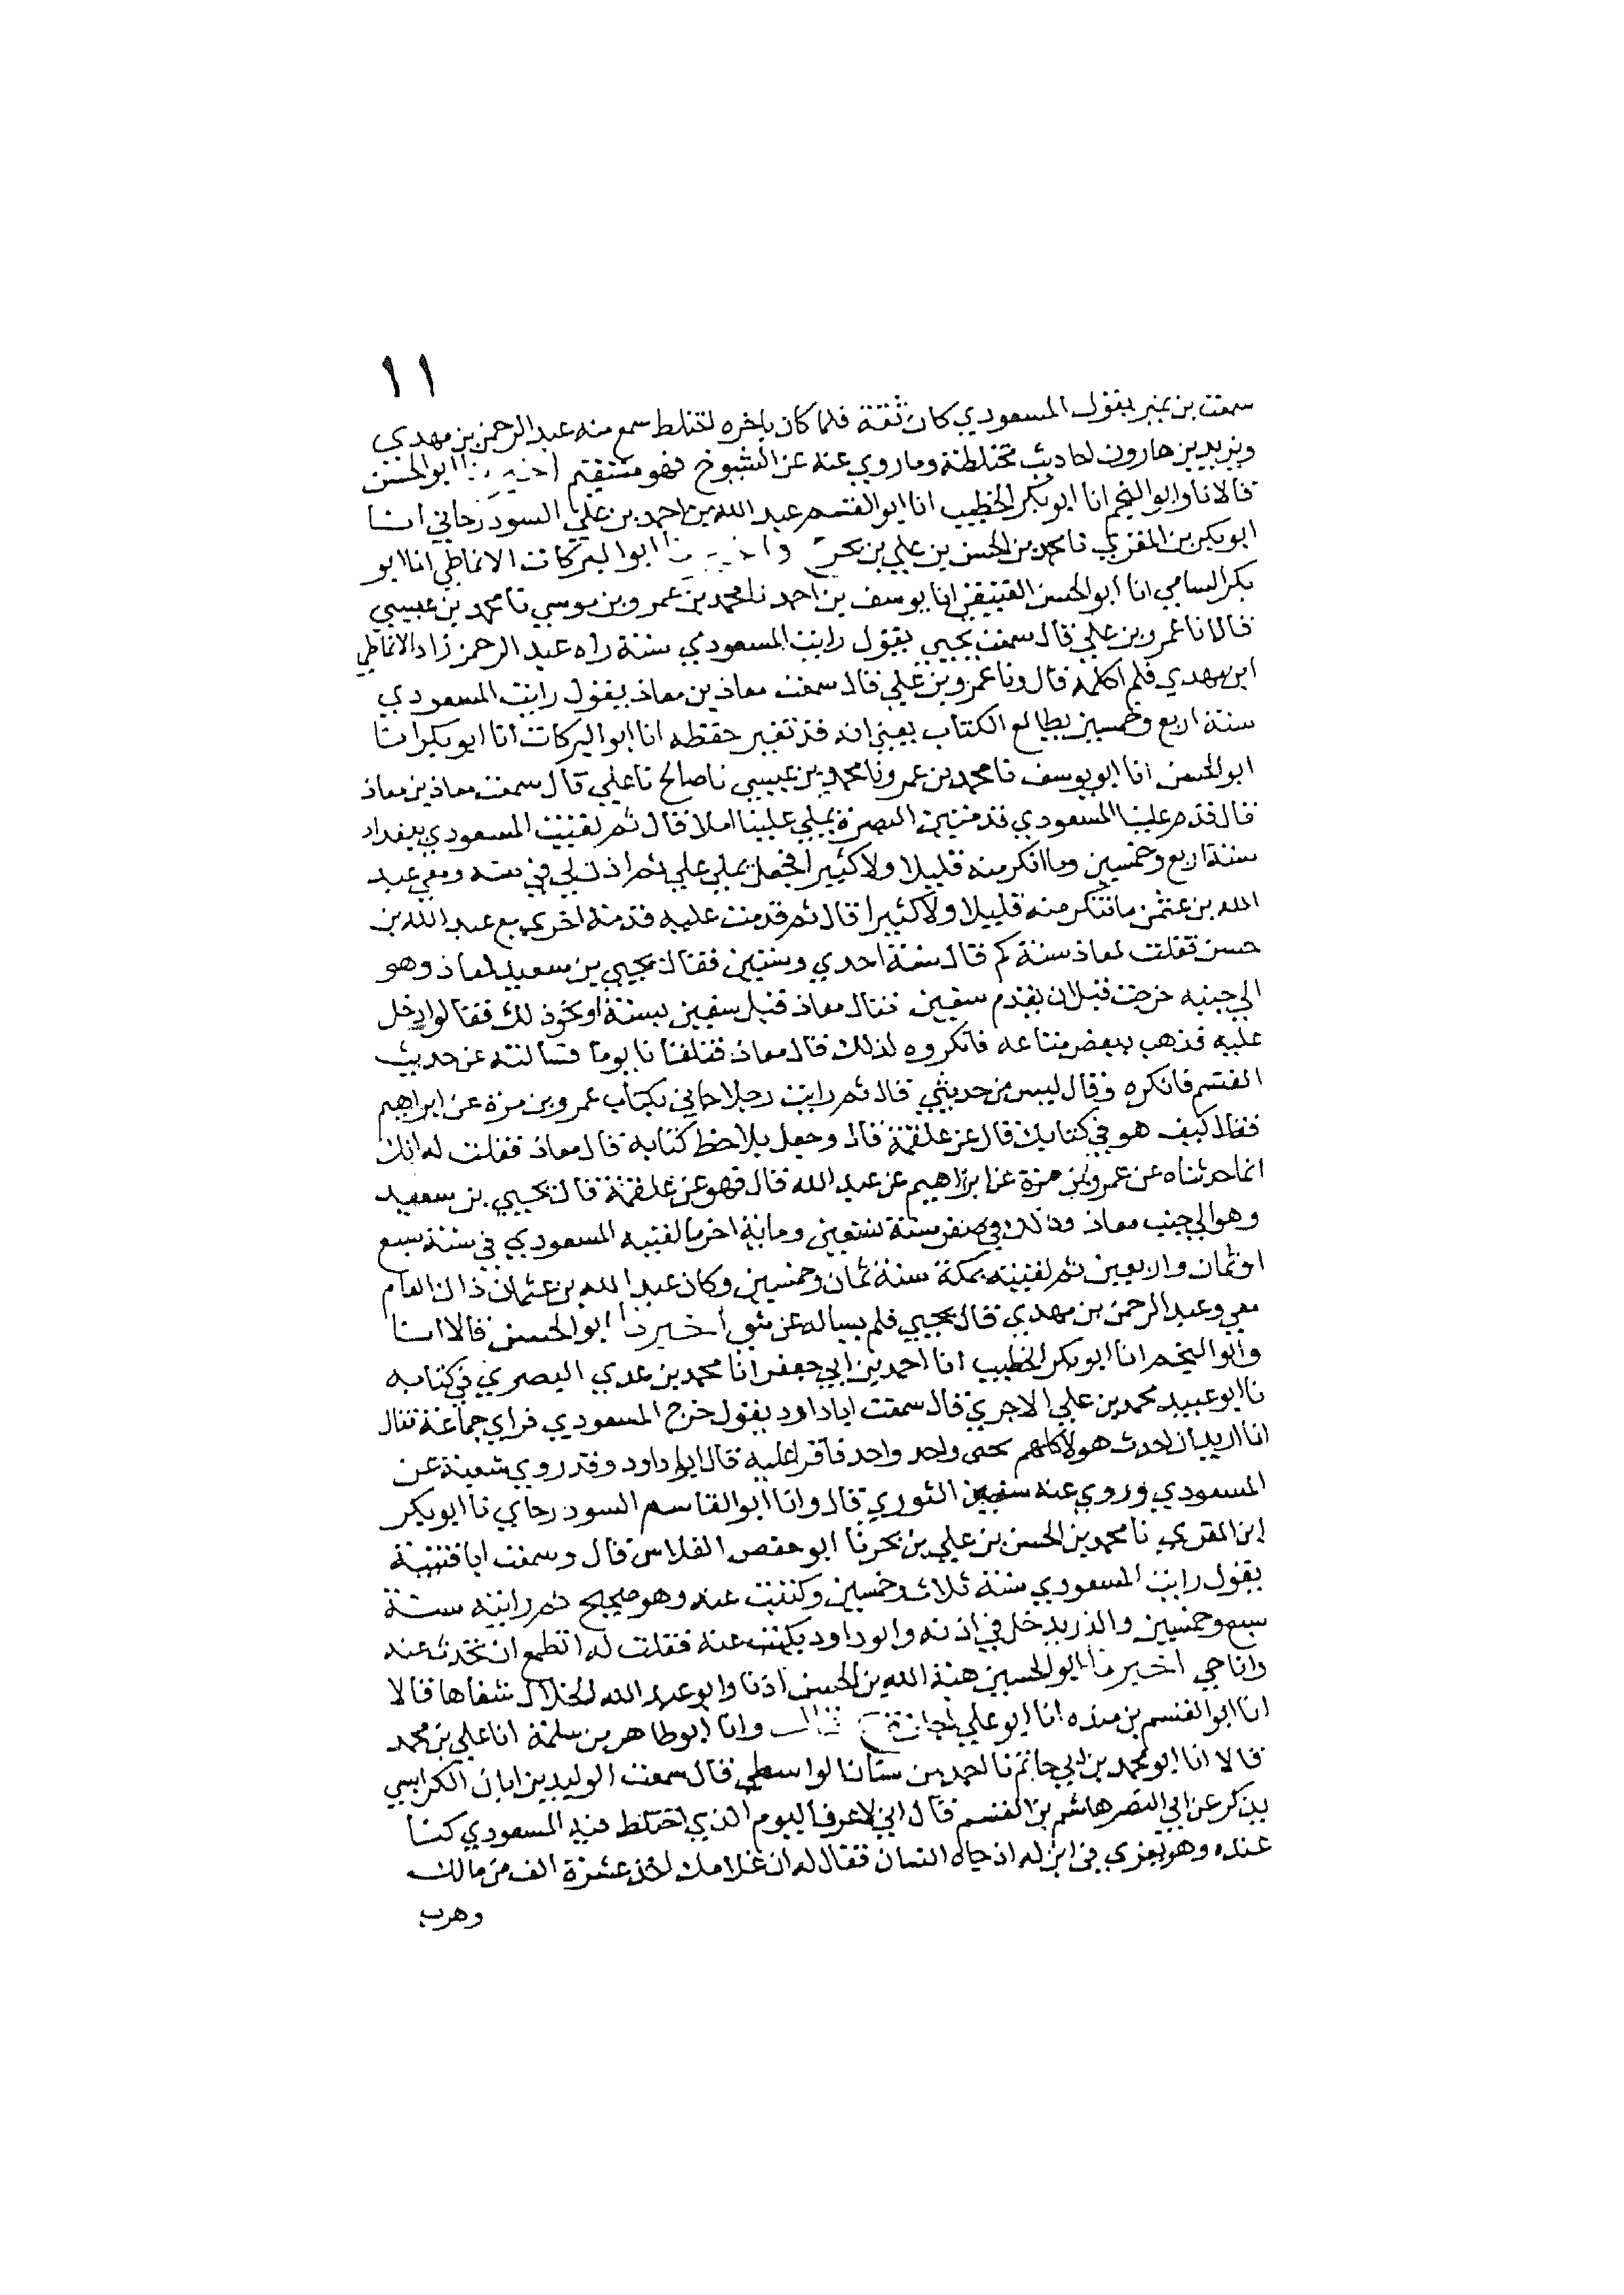 ١١
سمعت بن نمير يقول المسعودي كان ثقة فلما كان باخره اختلط سمع منه عبد الرحمن بن مهدي
ويزيد بن هارون احاديث مختلطة وما روي عنه عن الشيوخ فهو مستقيم اخبرنا ابو الحسن
قالا نا وابو النجم انا ابو بكر الخطيب انا ابو القسم عبد الله بن احمد بن علي السودرجاني انا
ابو بكر بن المقري نا محمد بن الحسن بن علي بن بحر ح واخبرنا ابو البركات الانماطي انا ابو
بكر السامي انا ابو الحسن العتيقي انا يوسف بن احمد نا محمد بن عمرو بن موسي نا محمد بن عيسي
قالا نا عمرو بن علي قال سمعت يحيي يقول رايت المسعودي سنة راه عبد الرحمن زاد الانماطي
ابن مهدي فلم اكلمه قال ونا عمرو بن علي قال سمعت معاذ بن معاذ يقول رايت المسعودي
سنة اربع وخمسين يطالع الكتاب يعني انه قد تغير حفظه انا ابو البركات انا ابو بكر انا
ابو الحسن انا ابو يوسف نا محمد بن عمرو نا محمد بن عيسي نا صالح نا علي قال سمعت معاذ بن معاذ
قال قدم علينا المسعودي قدمتين البصرة يملي علينا املا قال ثم لقيت المسعودي ببغداد
سنة اربع وخمسين وما انكر منه قليلا ولا كثيرا فجعل يملي علي ثم اذن لي في بيته ومعي عبد
الله بن عثمن ما ننكر منه قليلا ولا كثيرا قال ثم قدمت عليه قدمة اخري مع عبد الله بن
حسن فقلت لمعاذ سنة كم قال سنة احدي وستين فقال يحيي بن سعيد لمعاذ وهو
الي جنبه خرجت قبل ان يقدم سفين فقال معاذ قبل سفين بسنة او نحو ذلك فقالوا دخل
عليه فذهب ببعض متاعه فانكروه لذلك قال معاذ فتلقانا يوما فسالته عن حديث
القسم فانكره وقال ليس من حديثي قال ثم رايت رجلا جاني بكتاب عمرو بن مرة عن ابراهيم
فقال كيف هو في كتابك قال عن علقمة قال وجعل يلاحظ كتابه قال معاذ فقلت له انك
انما حدثناه عن عمرو بن مرة عن ابراهيم عن عبد الله قال فهو عن علقمة قال يحيي بن سعيد
وهو الي جنب معاذ وذلك في صفر سنة تسعين ومايه اخر ما لقيه المسعودي في سنة سبع
او ثمان واربعين ثم لقيته بمكة سنة ثمان وخمسين وكان عبد الله بن عثمان ذاك العام
معي وعبد الرحمن بن مهدي قال يحيي فلم يساله عن شي اخبرنا ابو الحسن قالا انا
وابو النجم انا ابو بكر الخطيب انا احمد بن ابي جعفر انا محمد بن عدي البصري في كتابه
نا ابو عبيد محمد بن علي الاجري قال سمعت ابا داود يقول خرج المسعودي فراي جماعة فقال
انا اريد ان احدث هولا كلهم يجي واحد واحد فاقرا عليه قال ابو داود وقد روي شعبة عن
المسعودي وروي عنه سفين الثوري قال وانا ابو القاسم السودرجاي نا ابو بكر
ابن المقري نا محمد بن الحسن بن علي بن بحر نا ابو حفص الفلاس قال وسمعت ابا قتيبة
يقول رايت المسعودي سنة ثلاث وخمسين وكتبت عنه وهو صحيح ثم رايته سنة
سبع وخمسين والذر يدخل في اذنه وابو داود يكتب عنه فقلت له اتطمع ان تحدث عنه
وانا حي اخبرنا ابو الحسين هبة الله بن الحسن اذنا وابو عبد الله الخلال شفاها قالا
انا ابو القسم بن منده انا ابو علي اجازة ح قال وانا ابو طاهر بن سلمة انا علي بن محمد
قالا انا ابو محمد بن ابي حاتم نا احمد بن سنان الواسطي قال سمعت الوليد بن ابان الكرابيسي
يذكر عن ابي النضر هاشم بن القسم قال اني لاعرف اليوم الذي اختلط فيه المسعودي كنا
عنده وهو يعزي في ابن له اذ جاه انسان فقال له ان غلامك اخذ عشرة الف من مالك
وهرب